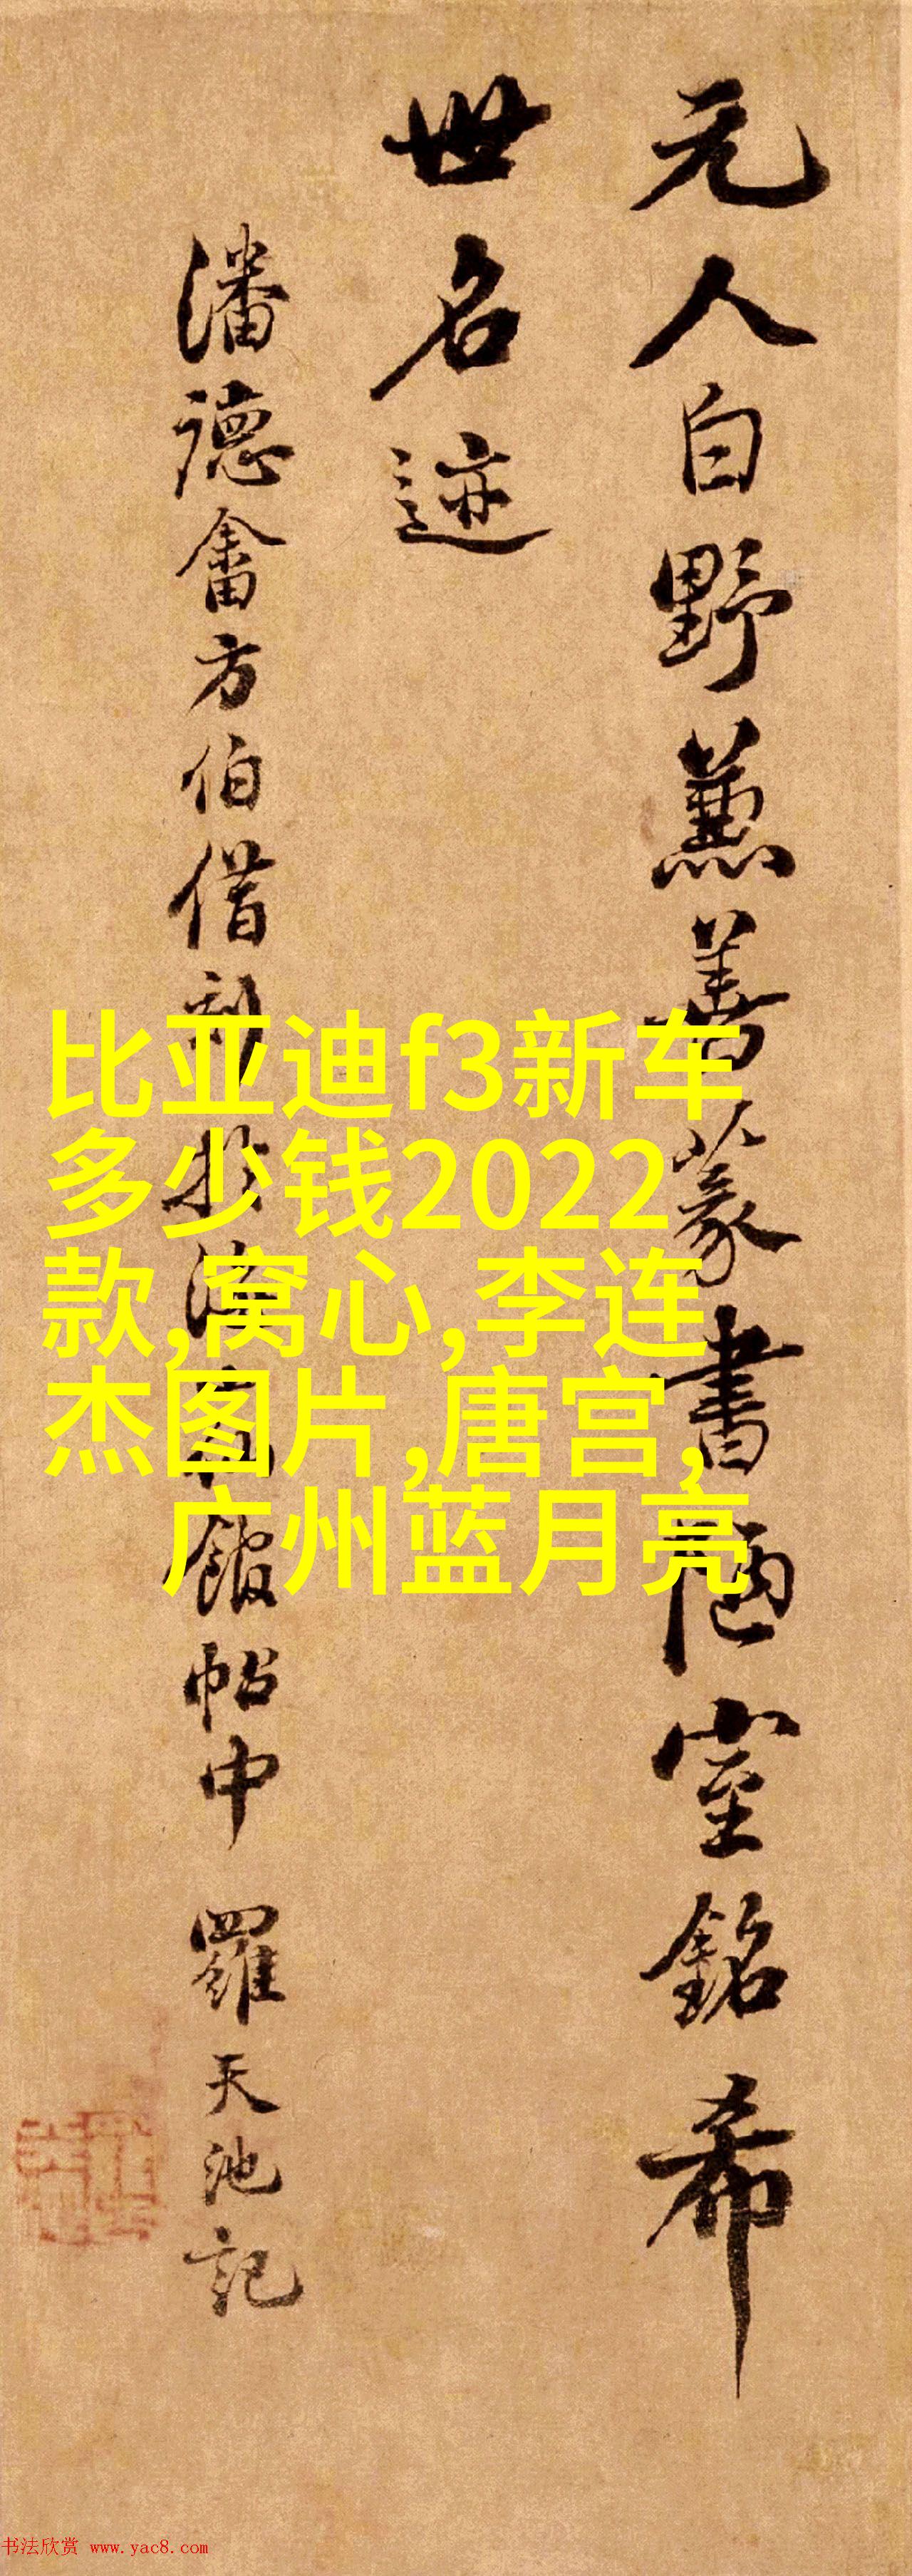 元人白野兼善篆書陋室銘希
世名迹
潘德畬方伯借刻於海山仙館帖中 羅天池記
比亚迪f3新车
多少钱2022
款,窝心,李连
杰图片,唐宫,
广州蓝月亮
书法欣赏 www.yac8.com